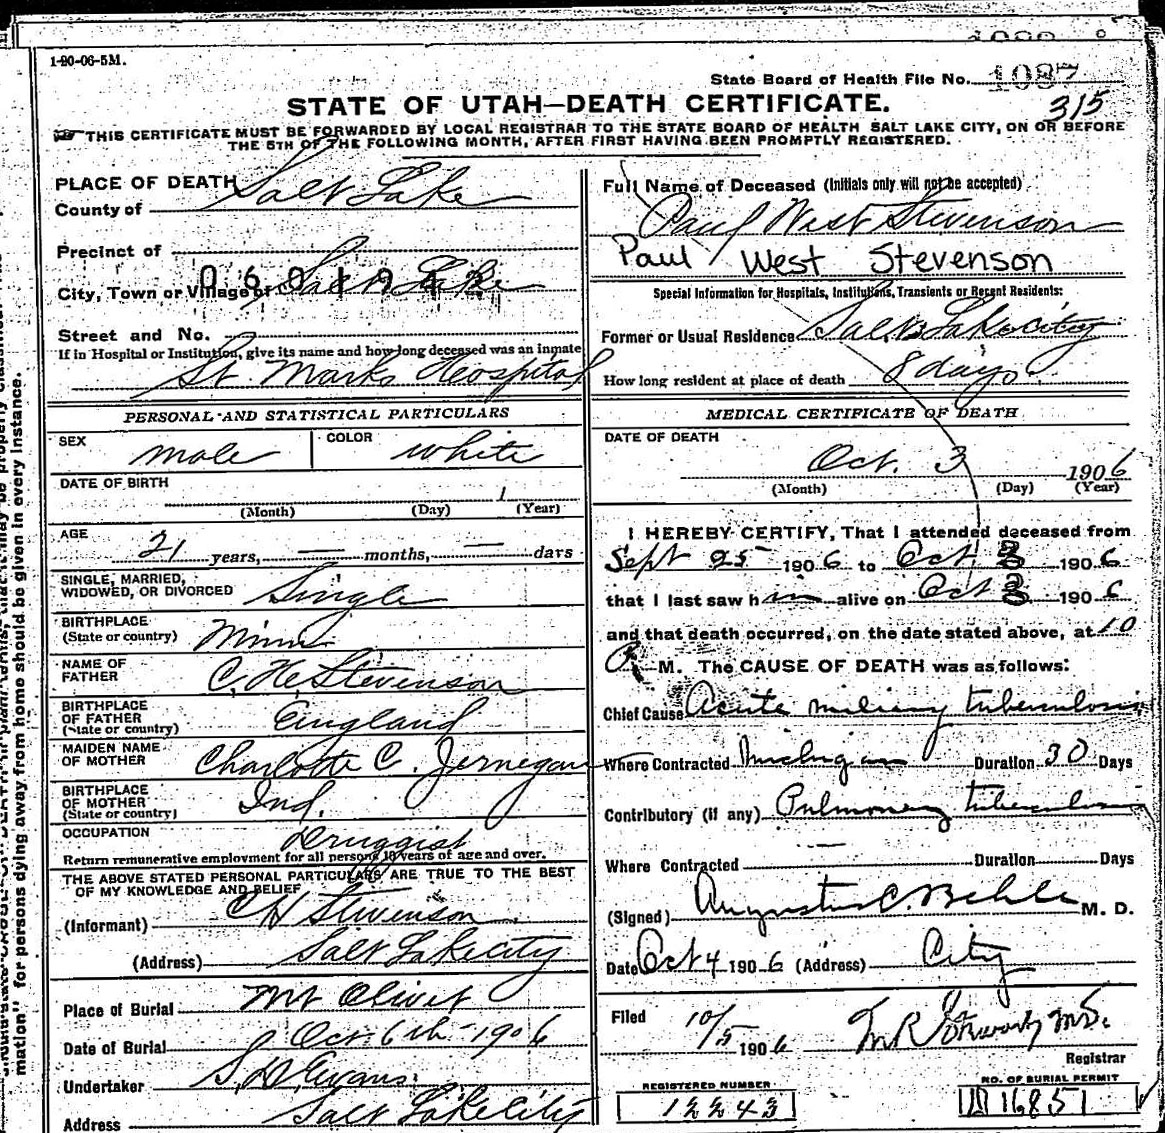 1-20-06-5M.
State Board of Health File No. 1087
315
STATE OF UTAH—DEATH CERTIFICATE.
THIS CERTIFICATE MUST BE FORWARDED BY LOCAL REGISTRAR TO THE STATE BOARD OF HEALTH SALT LAKE CITY, ON OR BEFORE
THE 5TH OF THE FOLLOWING MONTH, AFTER FIRST HAVING BEEN PROMPTLY REGISTERED.
PLACE OF DEATH
County of Salt Lake
Precinct of
City, Town or Village of Salt Lake
0601942
Street and No.
If in Hospital or Institution, give its name and how long deceased was an inmate
St. Marks Hospital
PERSONAL AND STATISTICAL PARTICULARS
SEX male COLOR white
DATE OF BIRTH 1
(Month) (Day) (Year)
AGE 21 years, — months, — days
SINGLE, MARRIED,
WIDOWED, OR DIVORCED Single
BIRTHPLACE
(State or country) Minn
NAME OF
FATHER C. H. Stevenson
BIRTHPLACE
OF FATHER
(State or country) England
MAIDEN NAME
OF MOTHER Charlotte C. Jernegan
BIRTHPLACE
OF MOTHER
(State or country) Ind.
OCCUPATION Druggist
Return remunerative employment for all persons 10 years of age and over.
THE ABOVE STATED PERSONAL PARTICULARS ARE TRUE TO THE BEST
OF MY KNOWLEDGE AND BELIEF
(Informant) C H Stevenson
(Address) Salt Lake City
Place of Burial Mt Olivet
Date of Burial Oct. 6th - 1906
Undertaker S. D. Evans.
Address Salt Lake City
Full Name of Deceased (Initials only will not be accepted)
Paul West Stevenson
Paul West Stevenson
Special Information for Hospitals, Institutions, Transients or Recent Residents:
Former or Usual Residence Salt Lake City
How long resident at place of death 8 days
MEDICAL CERTIFICATE OF DEATH
DATE OF DEATH
Oct. 3 1906
(Month) (Day) (Year)
I HEREBY CERTIFY, That I attended deceased from
Sept 25 1906 to Oct. 3 1906
that I last saw him alive on Oct 3 1906
and that death occurred, on the date stated above, at 10
M. The CAUSE OF DEATH was as follows:
Chief Cause Acute miliary tuberculosis
Where Contracted Michigan Duration 30 Days
Contributory (if any) Pulmonary tuberculosis
Where Contracted — Duration Days
(Signed) Augustus C Behle M. D.
Date Oct 4 1906 (Address) City
Filed 10/5 1906 M.D.
Registrar
REGISTERED NUMBER
12243
NO. OF BURIAL PERMIT
16851
mation" for persons dying away from home should be given in every instance.